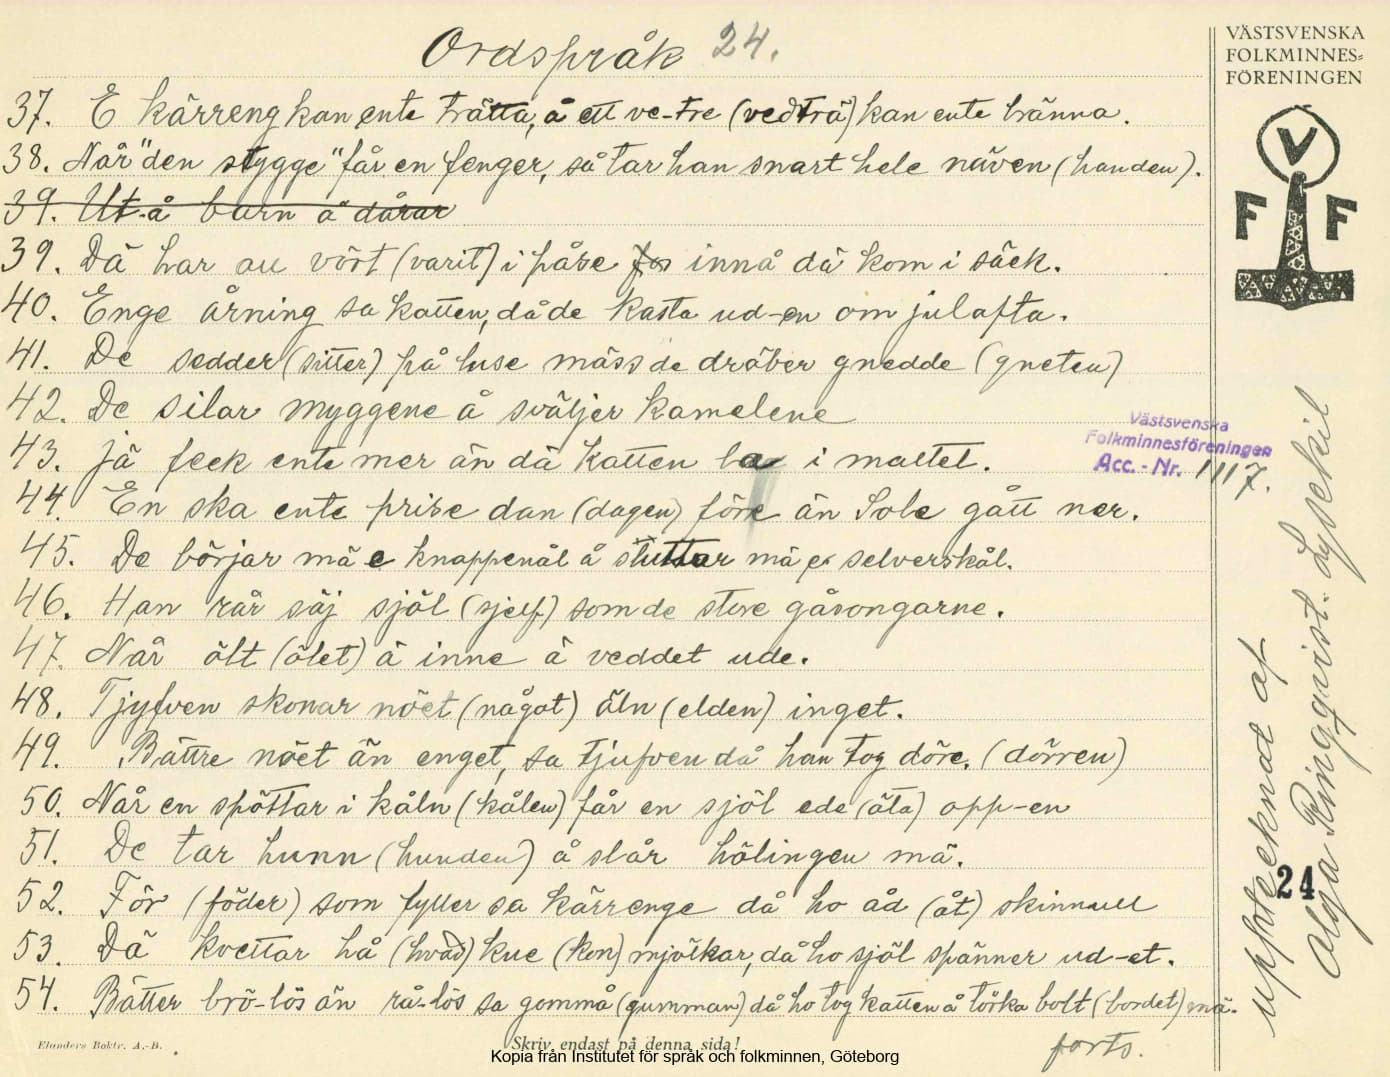 Ordspråk 24.
37. E kärreng kan ente trätta, å ett ve-tre (vedträ) kan ente bränna.
38. Når "den stygge" får en fenger, så tar han snart hele näven (handen).
39. Ut-å barn ä dårar
39. Dä har au vört (varit) i påse innå dä kom i säck.
40. Enge årning sa katten, då de kasta ud-en om julafta.
41. De sedder (sitter) på huse mäss de dräber gnedde (gneten)
42. De silar myggene å sväljer kamelene
43. Jä feck ente mer än dä katten la i maltet.
44. En ska ente prise dan (dagen) före än Sole gått ner.
45. De börjar mä e knappenål å sluttar mä e selverskål.
46. Han rår säj själ (sjelf) som de store gåsongarne.
47. Når ölt (ölet) ä inne ä veddet ude.
48. Tjyfven skonar nöet (något) äln (elden) inget.
49. Bättre nöet än enget, sa tjufven då han tog döre. (dörren)
50. Når en spöttar i kåln (kålen) får en sjöl ede (äta) opp-en
51. De tar hunn (hunden) å slår hölingen mä.
52. För (föder) som fyller sa kärrenge då ho åd (åt) skinnull
53. Dä kvettar hå (hvad) kue (kon) mjölkar, då ho sjöl spänner ud-et.
54. Bätter brö-lös än rå-lös sa gommå (gumman) då ho tog katten å törka bolt (bordet) mä.
forts.
Elanders Boktr. A.-B.
Skriv endast på denna sida!
Kopia från Institutet för språk och folkminnen, Göteborg
VÄSTSVENSKA
FOLKMINNES=
FÖRENINGEN
V
F F
Västsvenska
Folkminnesföreningen
Acc.-Nr. 1117.
upptecknad af
Olga Ringqvist. Lysekil
24